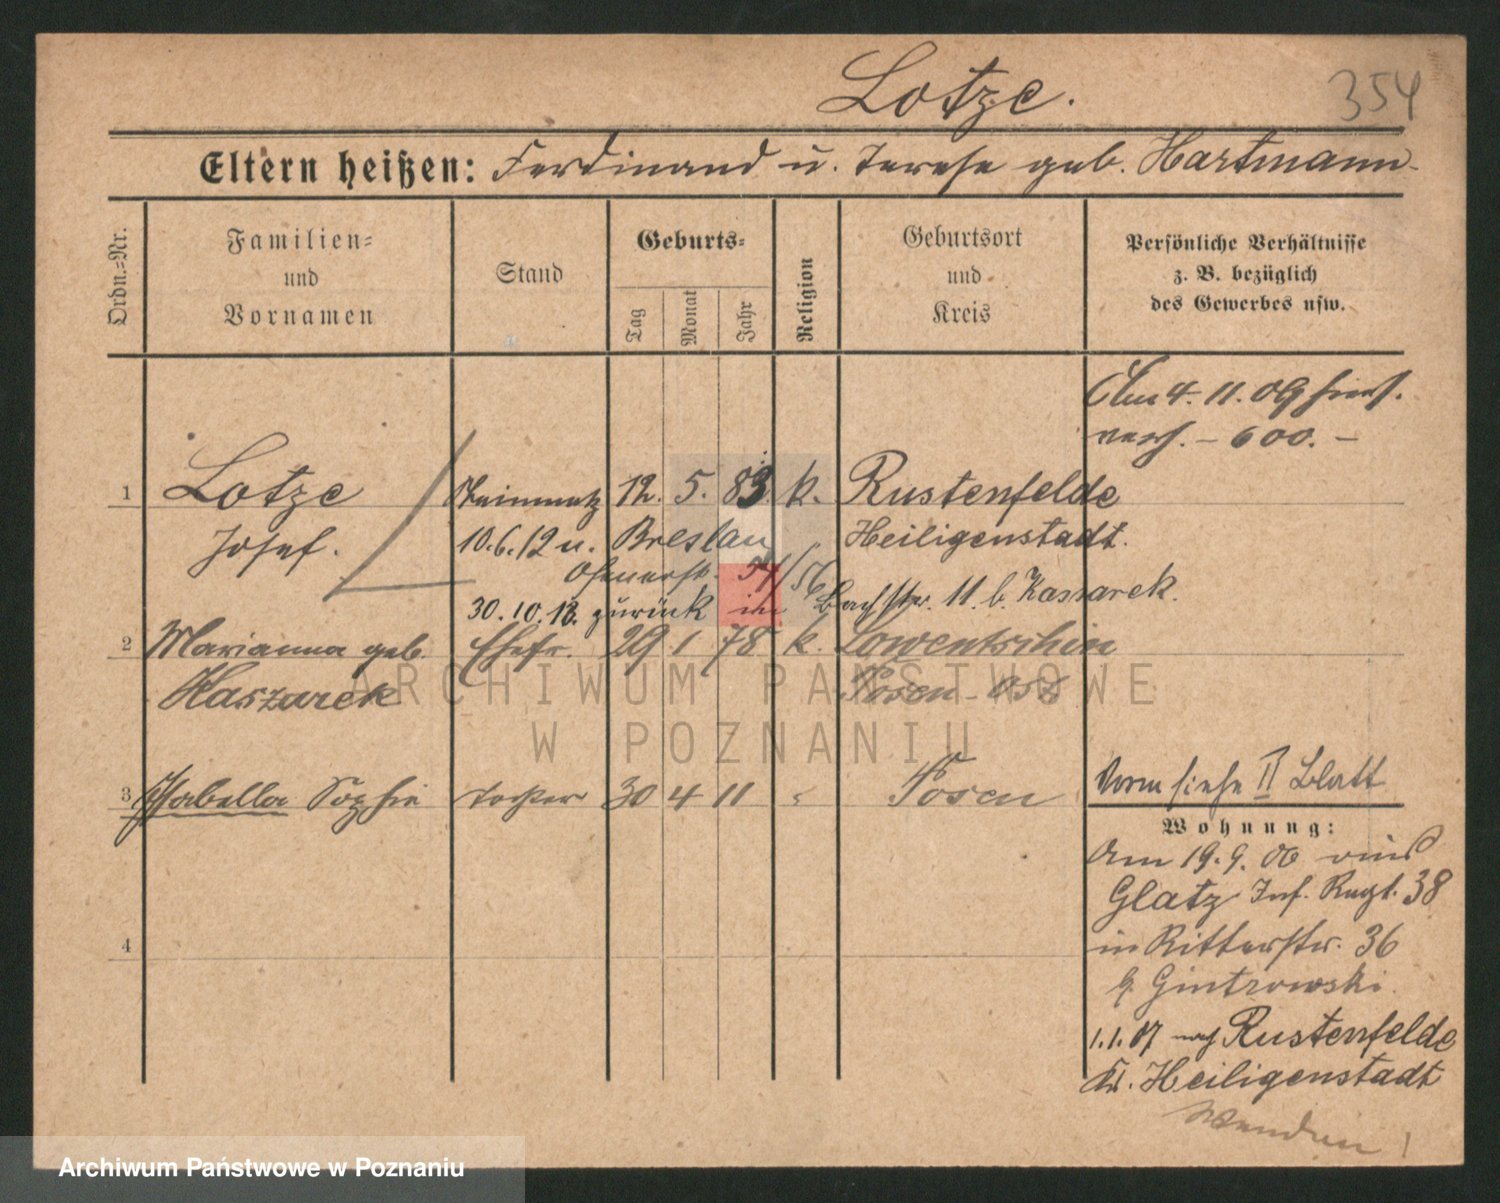 Lotze.
354
Eltern heißen: Ferdinand u. Terese geb. Hartmann
Ordn.=Nr.
Familien=
und
Vornamen
Stand
Geburts=
Tag
Monat
Jahr
Religion
Geburtsort
und
Kreis
Persönliche Verhältnisse
z. B. bezüglich
des Gewerbes usw.
Am 4. 11. 09
– 600. –
1 Lotze Steinmetz 12. 5. 83. k. Rustenfelde
Josef. 10.6.12 u. Breslau Heiligenstadt.
54/56
30. 10. 12. zurück in Bachstr. 11. b. Kassarek.
2 Marianna geb. Ehefr. 29 1 78 k. Lowentschin
Haszarek Posen-Ost
3 Isabella Sophie Tochter 30 4 11 " Posen
Vorm siehe II Blatt
Wohnung:
Am 19. 9. 06 aus
Glatz Inf. Regt. 38
in Ritterstr. 36
b. Gintrowski.
1.1.07 nach Rustenfelde
Kr. Heiligenstadt
Wenden!
4
ARCHIWUM PAŃSTWOWE
W POZNANIU
Archiwum Państwowe w Poznaniu